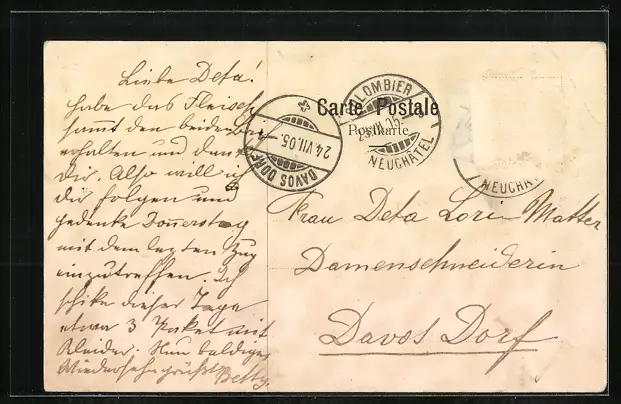 Liebe Deta!
habe das Fleisch
samt den beiden
erhalten und danke
dir. Also will ich
dir folgen und
gedenke Donnerstag
mit dem lezten Zug
einzutreffen. Ich
schike dieser Tage
etwa 3 Paket mit
Kleider. Nun baldiges
Wiedersehn grüsst Betty.
Carte Postale
Postkarte
COLOMBIER
NEUCHÂTEL
24.VII.05.
DAVOS DORF
NEUCHÂ
Frau Deta Lori-Matter
Damenschneiderin
Davos Dorf